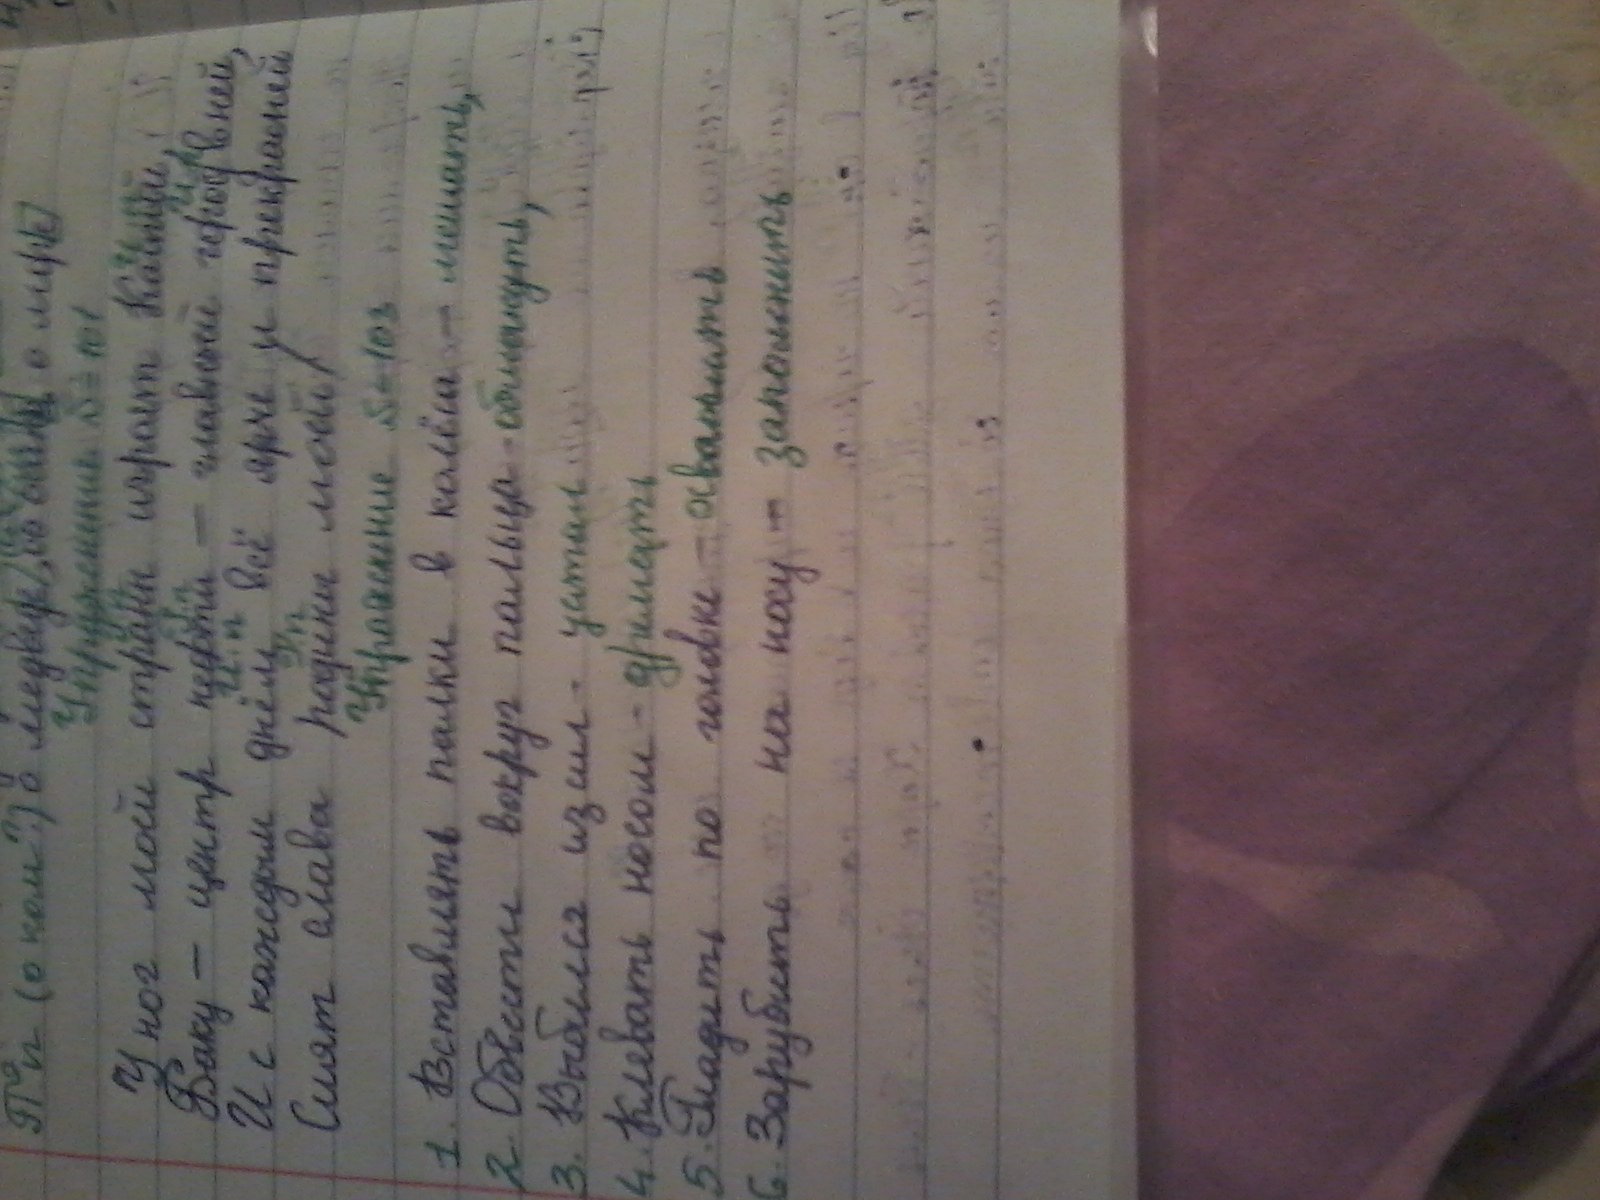 П.п (о ком?) о медведе, об отце, о мире
Упражнение 5=101
У ног моей страны играет Каспий,
Баку – центр нефти – главный город в ней,
И с каждым днём всё ярче и прекрасней
Сият слава родины моей
Упражнение 5=103
1. Вставлять палки в колёса – мешать,
2. Обвести вокруг пальца - обмануть,
3. Выбился из сил - устал
4. Клевать носом - дремать
5. Гладить по головке - осваивать
6. Зарубить на носу - запомнить